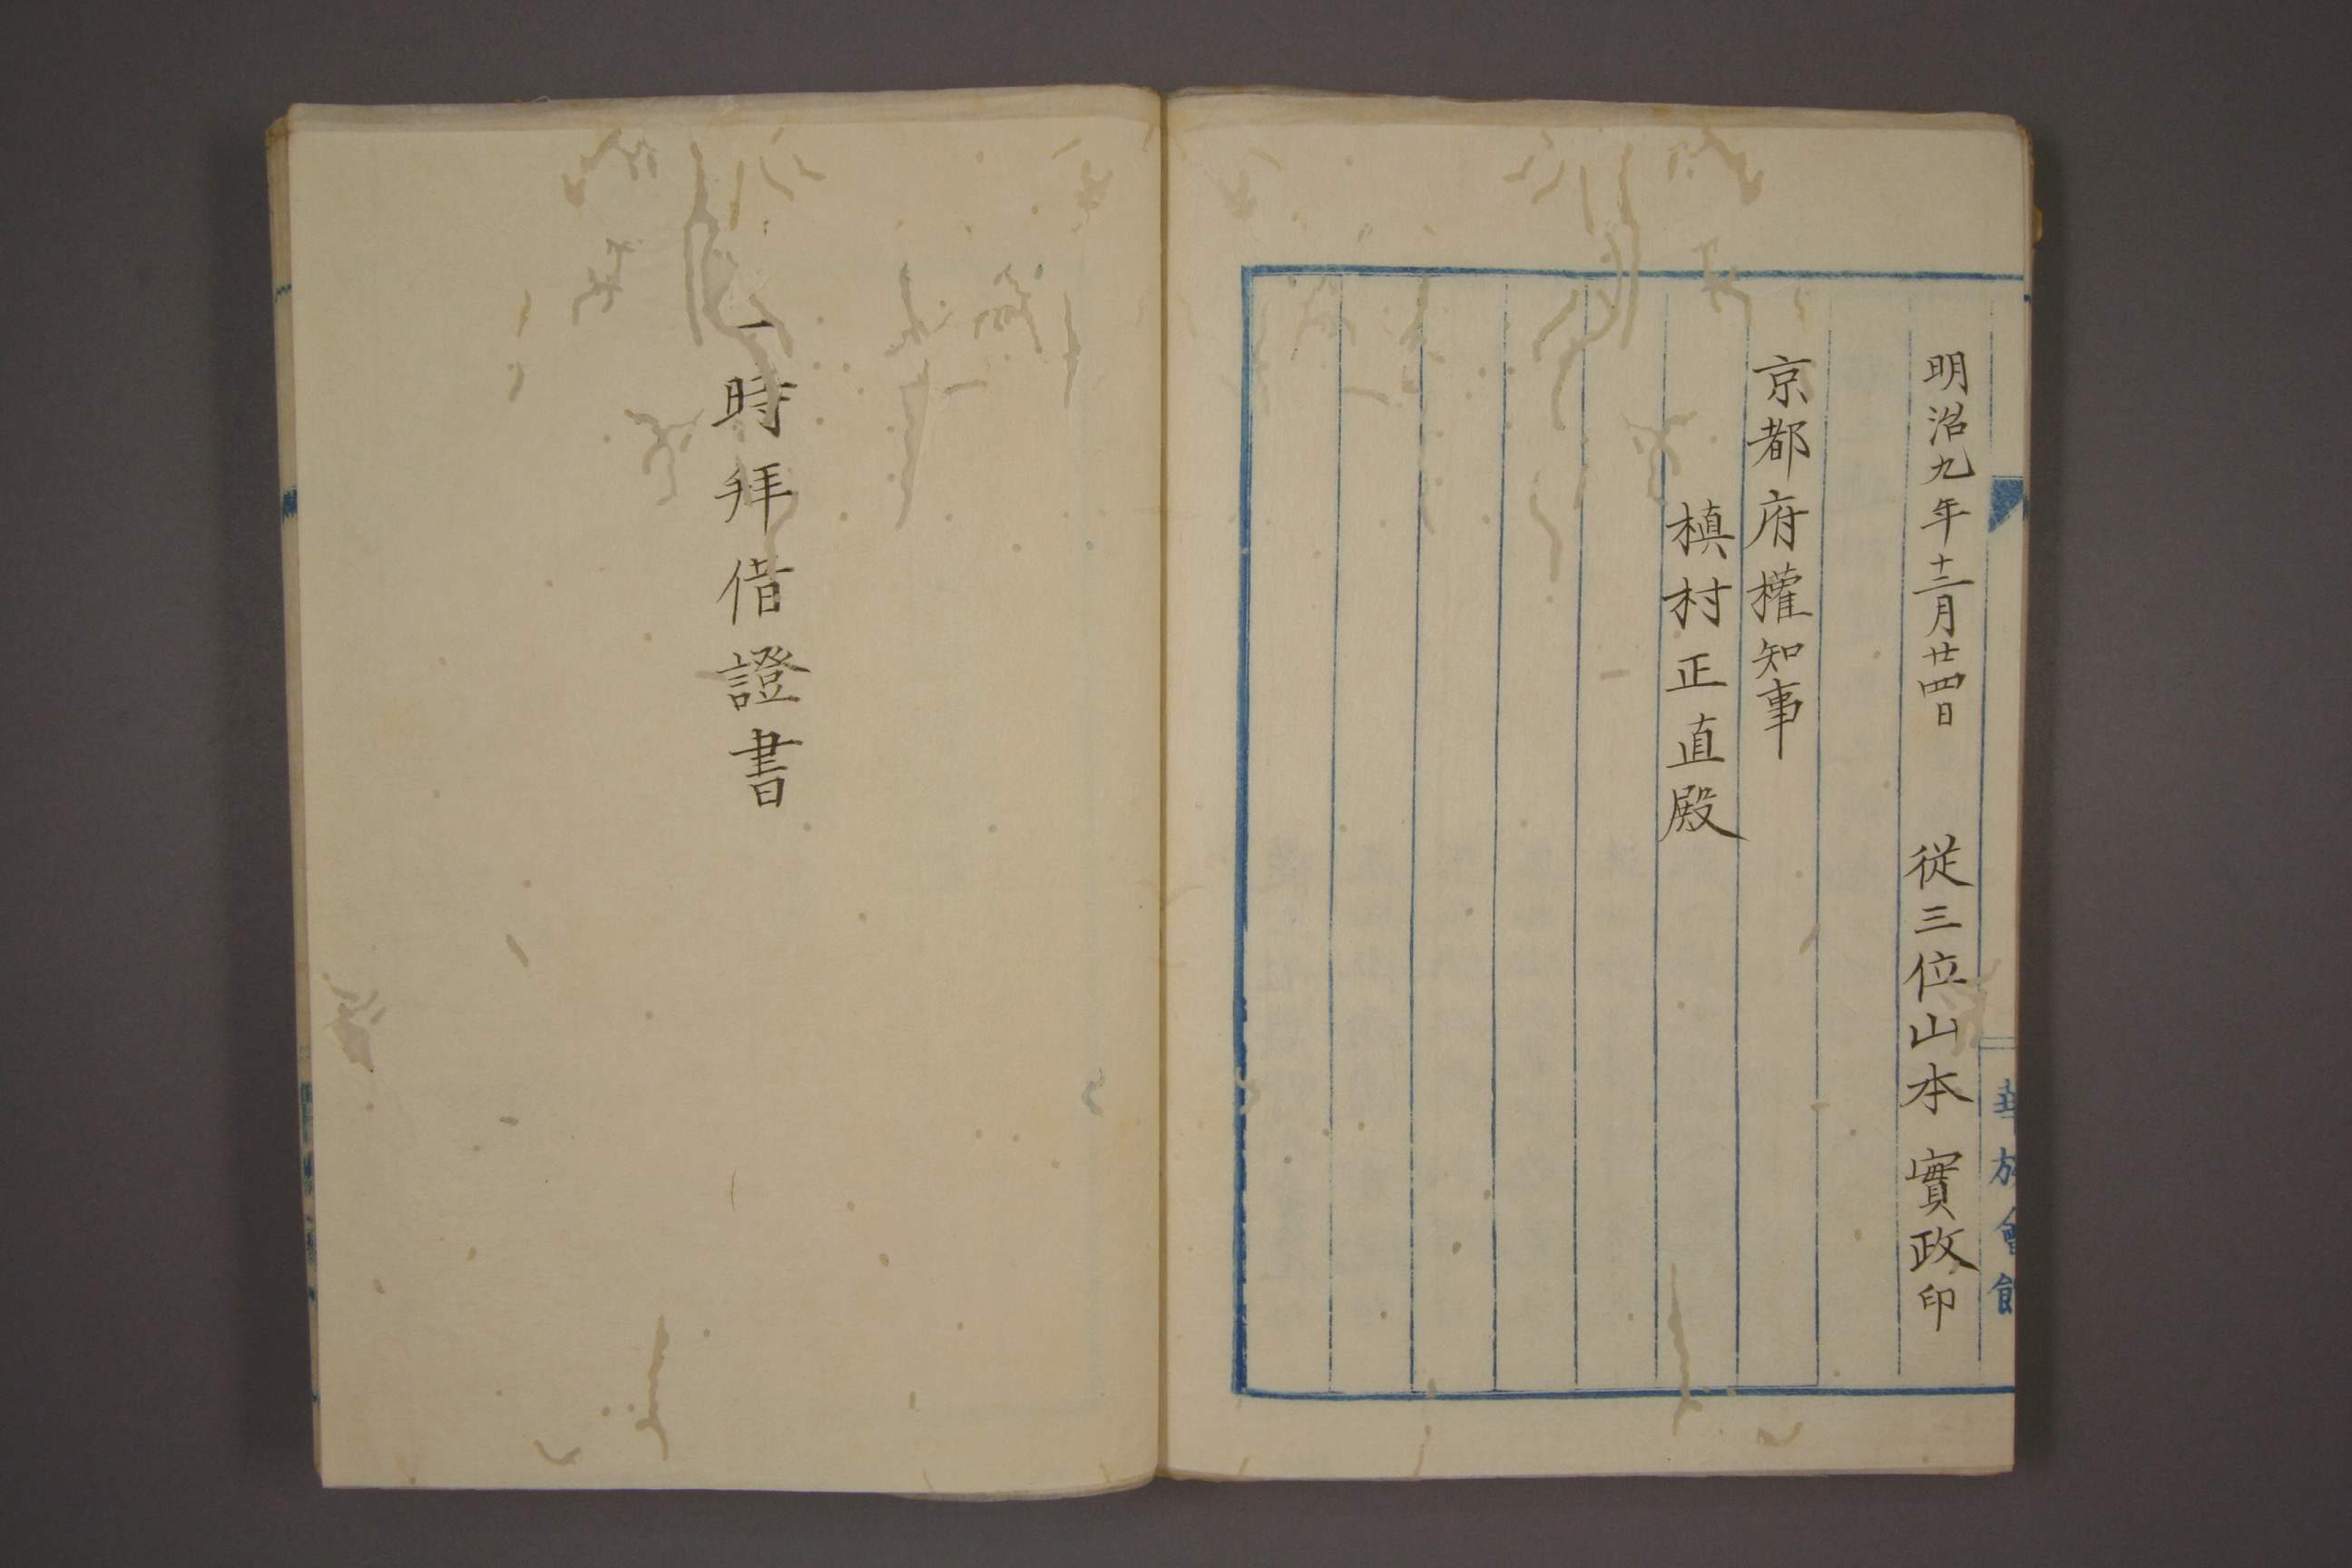 明治九年十二月廿四日　從三位山本實政印
京都府權知事
槙村正直殿
華族會館
一時拜借證書